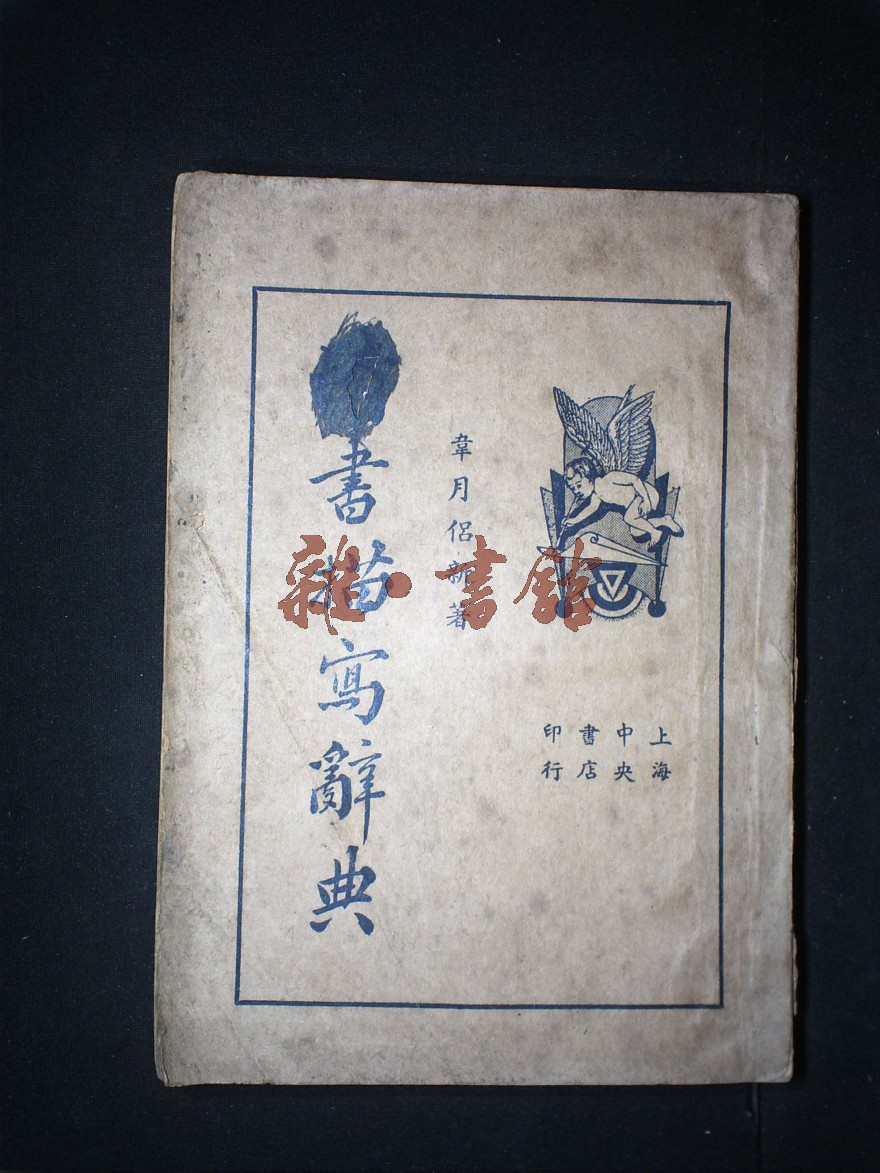 書描寫辭典
韋月侶新著
上海
中央
書店
印行
雜·書館